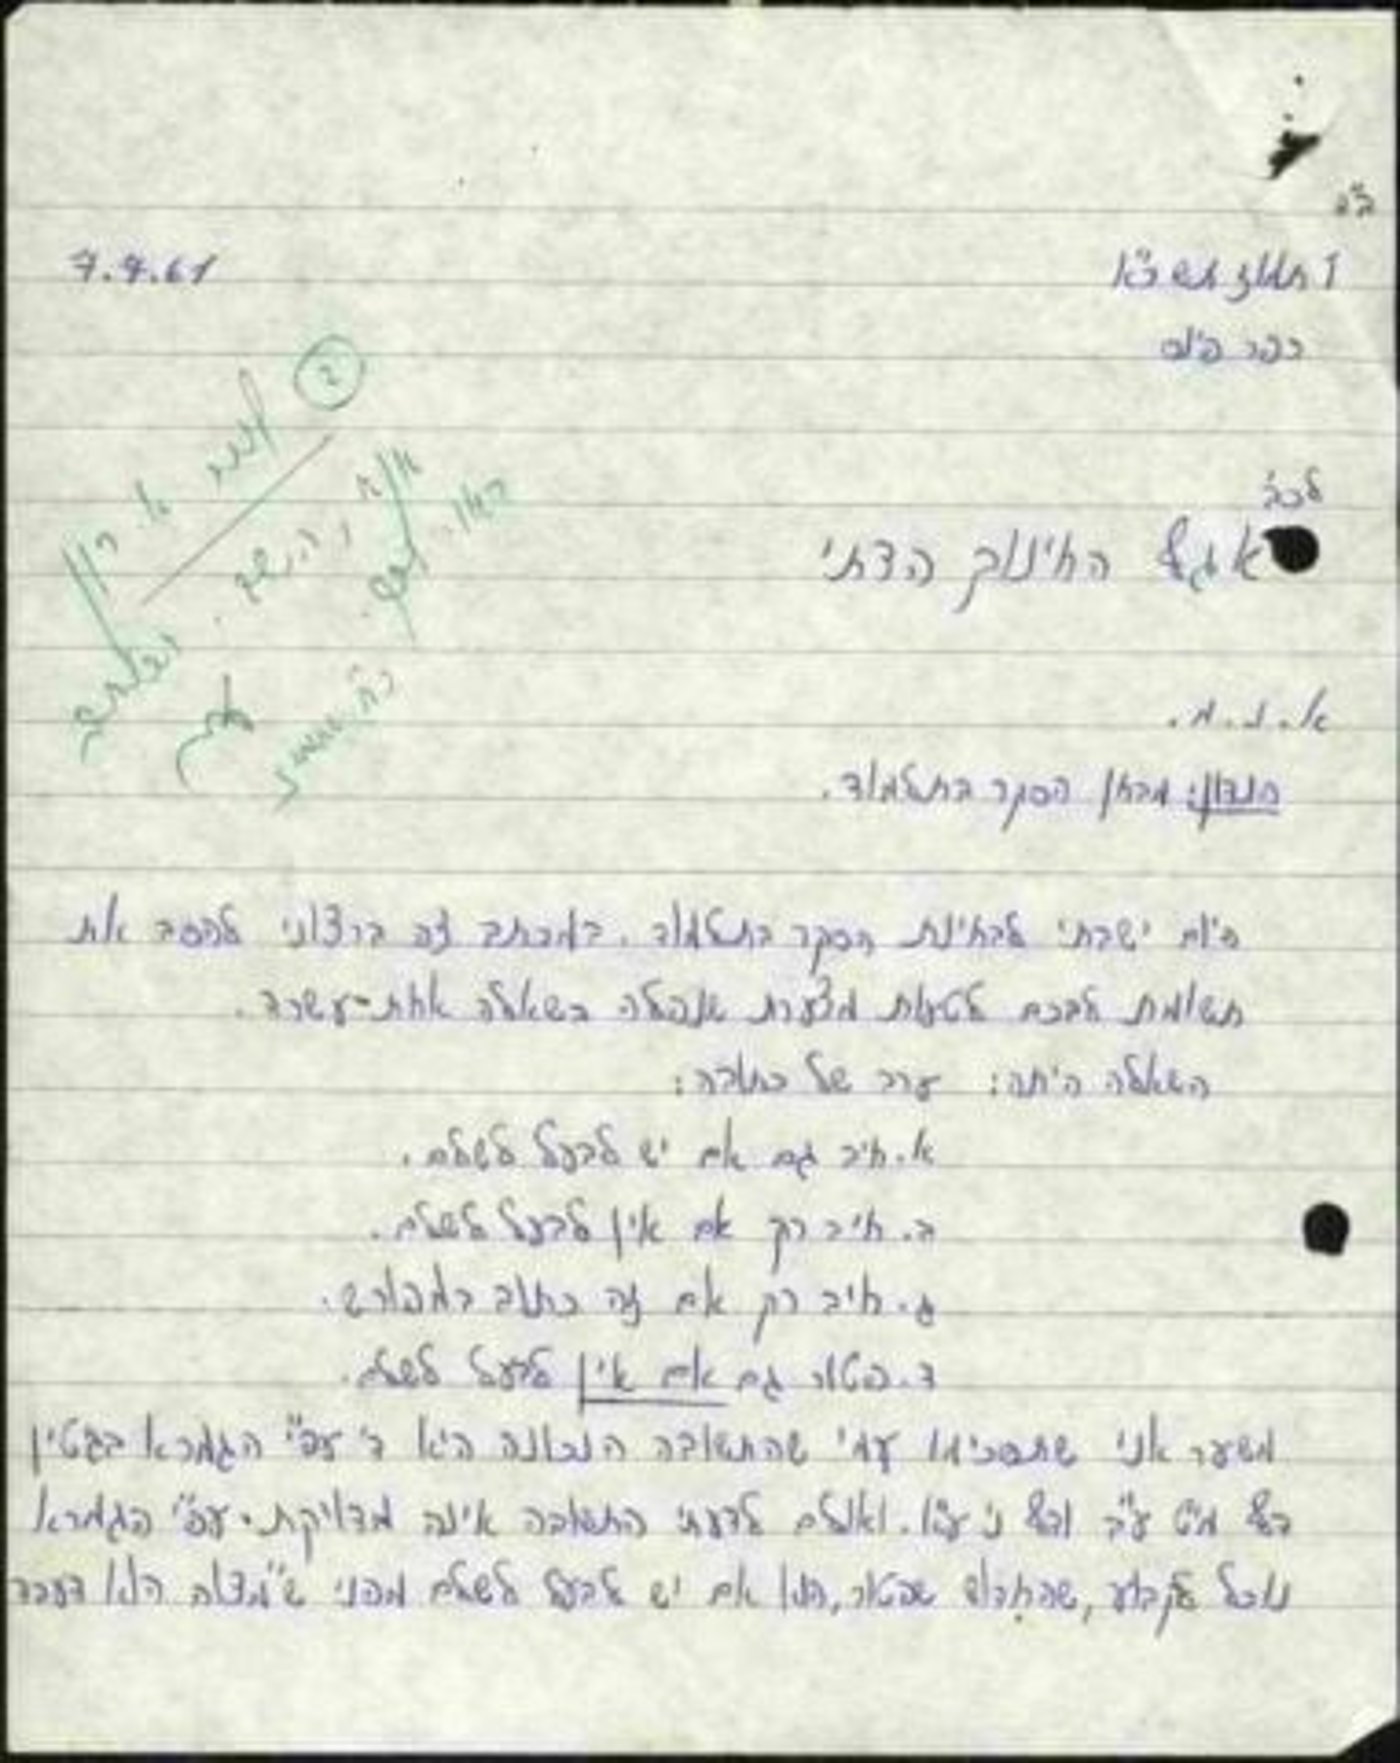 ב"ה
7.7.61
תמוז תשכ"א
כפר פינס
לכב'
אגף החינוך הדתי
א. נ. מ.
הנדון: מבחן הסקר בתלמוד.
היום ישבתי לבחינת הסקר בתלמוד. במכתב זה ברצוני להסב את
תשומת לבכם לטעות מצערת שנפלה בשאלה אחת-עשרה.
השאלה היתה: ערב של כתובה:
א. חיב גם אם יש לבעל לשלם.
ב. חיב רק אם אין לבעל לשלם.
ג. חיב רק אם זה כתוב במפורש.
ד. פטור גם אם אין לבעל לשלם.
משער אני שתסכימו עמי שהתשובה הנכונה היא ד' עפ"י הגמרא בגטין
דף מ"ט ע"ב ודף נ' ע"א. ואולם לדעתי התשובה אינה מדויקת. עפ"י הגמרא
נוכל לקבוע, שפטור, הוא אם יש לבעל לשלם מפני ש"מצוה הוא דעבד